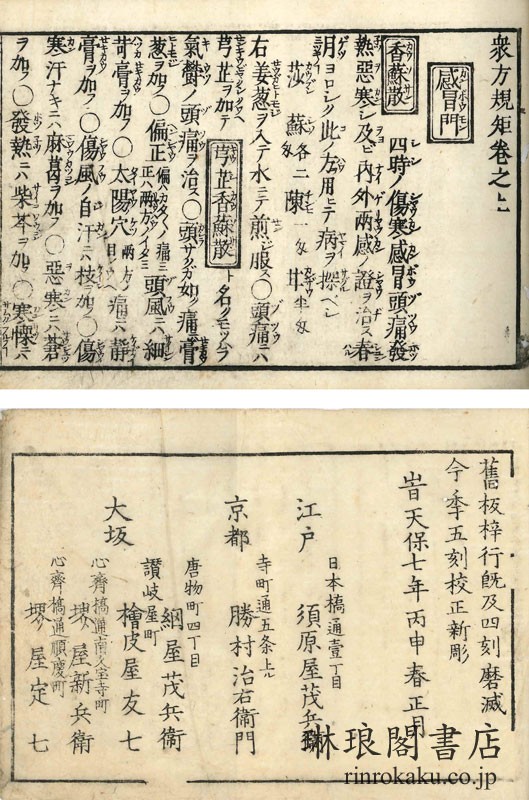 衆方規矩卷之上
感冒門
香蘇散 四時ノ傷寒感冒頭痛發
熱惡寒シ及ヒ內外兩感ノ證ヲ治ス春
月ヨロシク此ノ方ヲ用ヒテ病ヲ探ヘシ
莎 蘇各二匁 陳一匁 甘半匁
右姜葱ヲ入テ水ニテ煎ジ服ス〇頭痛ニハ
芎芷ヲ加フ 芎芷香蘇散ト名ク
氣欝ノ頭痛ヲ治ス〇頭サクガ如ク痛ニ膏
葱ヲ加フ〇偏正 頭風ニハ細
芎膏ヲ加フ〇太陽穴 痛ニハ靜
膏ヲ加フ〇傷風ノ自汗ニハ枝ヲ加フ〇傷
寒汗ナキニハ麻葛ヲ加フ〇惡寒ニハ蒼
ヲ加フ〇發熱ニハ柴芩ヲ加フ〇寒慄ニハ
舊板梓行既及四刻磨滅
今季五刻校正新彫
旹天保七年丙申春正月
江戸 日本橋通壹丁目
須原屋茂兵衛
京都 寺町通五条上ル
勝村治右衞門
大坂 唐物町四丁目
綱屋茂兵衞
讃岐屋町
檜皮屋友七
心齋橋通南久宝寺町
堺屋新兵衞
心齊橋通順慶町
堺屋定七
琳琅閣書店
rinrokaku.co.jp